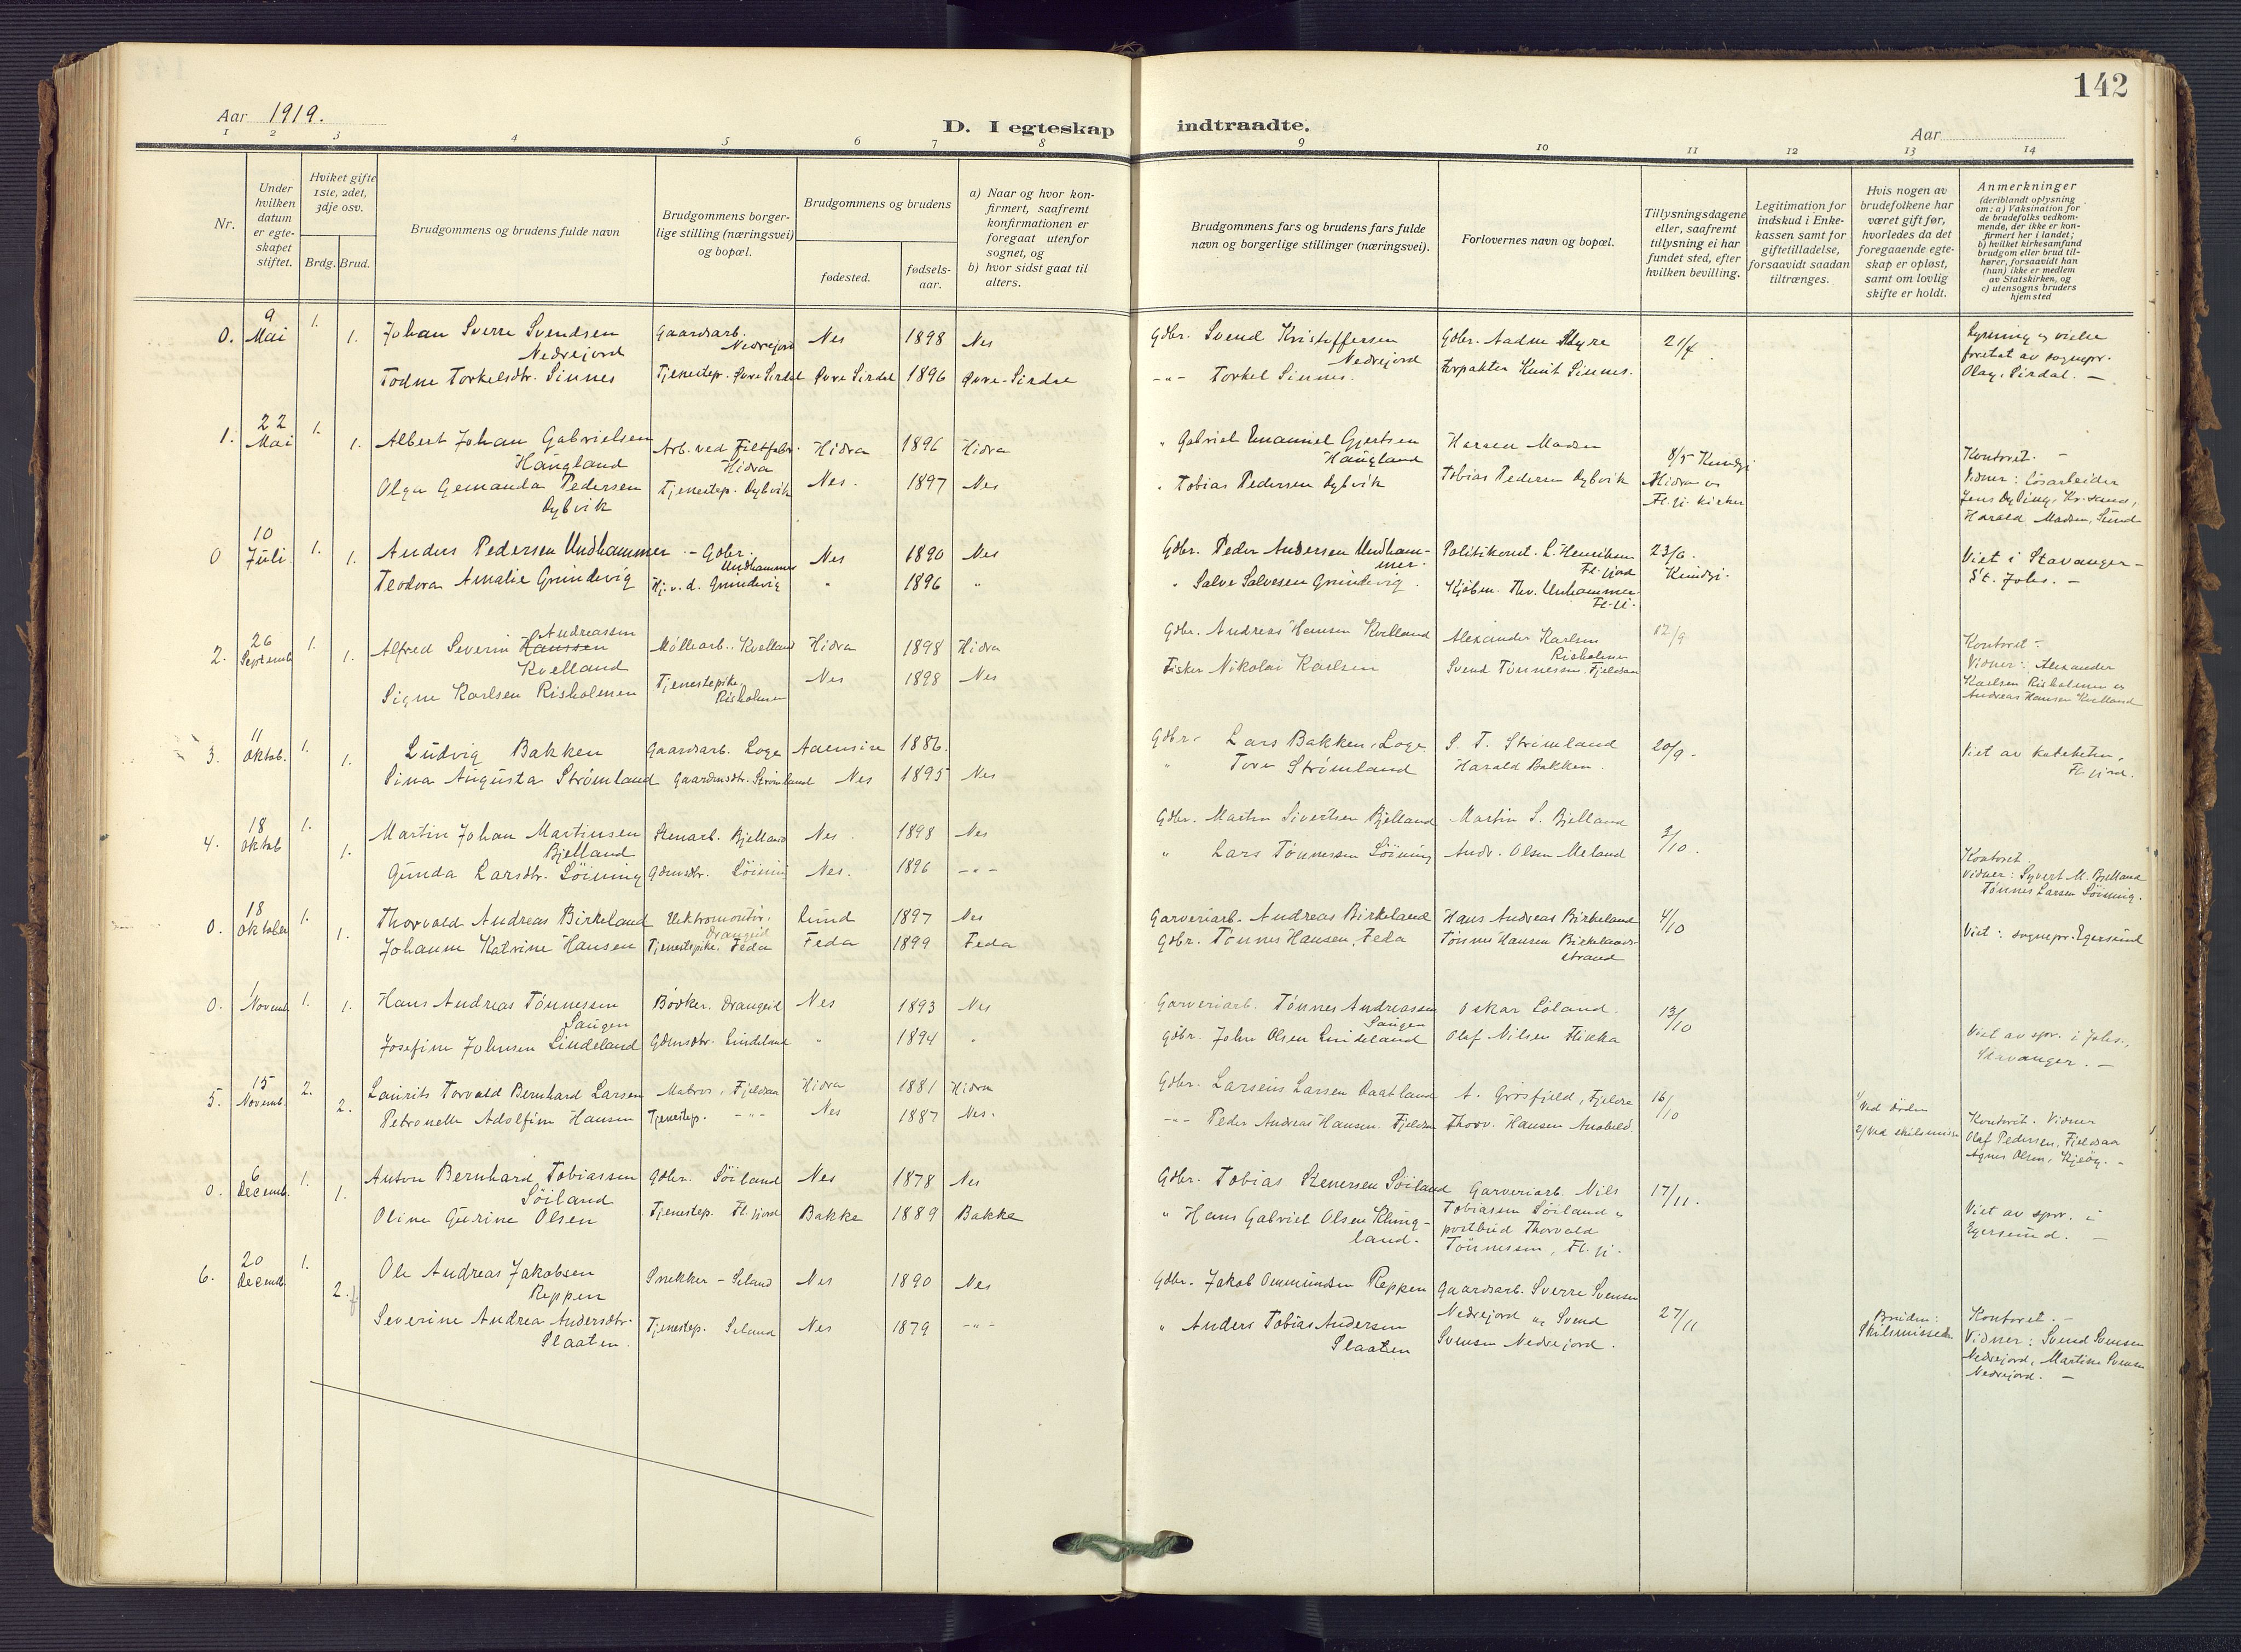 142
Aar 1919.
D. I egteskap indtraadte.
Aar
1 2 3 4 5 6 7 8 9 10 11 12 13 14
Nr.
Under hvilken datum er egteskapet stiftet.
Hviket gifte 1ste, 2det, 3dje osv.
Brdg. Brud.
Brudgommens og brudens fulde navn
Brudgommens borgerlige stilling (næringsvei) og bopæl.
Brudgommens og brudens
fødested.
fødselsaar.
a) Naar og hvor konfirmert, saafremt konfirmationen er foregaat utenfor sognet, og
b) hvor sidst gaat til alters.
Brudgommens fars og brudens fars fulde navn og borgerlige stillinger (næringsvei).
Forlovernes navn og bopæl.
Tillysningsdagene eller, saafremt tillysning ei har fundet sted, efter hvilken bevilling.
Legitimation for indskud i Enkekassen samt for giftetilladelse, forsaavidt saadan tiltrænges.
Hvis nogen av brudefolkene har været gift før, hvorledes da det foregaaende egteskap er opløst, samt om lovlig skifte er holdt.
Anmerkninger (deriblandt oplysning om: a) Vaksination for de brudefolks vedkommende, der ikke er konfirmert her i landet; b) hvilket kirkesamfund brudgom eller brud tilhører, forsaavidt han (hun) ikke er medlem av Statskirken, og c) utensogns bruders hjemsted
0. 9 Mai 1. 1. Johan Sverre Svendsen Nedrejord Gaardsarb. Nedrejord Nes 1898 Nes Gdbr. Svend Kristoffersen Nedrejord Gdbr. Aadne 21/4
Todne Torkelsdtr. Sinnes Tjenestep. Øvre Sirdal Øvre Sirdal 1896 Øvre-Sirdal -"- Torkel Sinnes. Forpakter Knut Sinnes.
Lysning og vielse foretat av sognepr. Olay, Sirdal. -
1. 22 Mai 1. 1. Albert Johan Gabrielsen Haugland Arb. ved Filtfabr. Hidra Hidra 1896 Hidra " Gabriel Emanuel Gjertsen Haugland Madsen 8/5
Olga Gemanda Pedersen Dybvik Tjenestep. Dybvik Nes. 1897 Nes " Tobias Pedersen Dybvik Tobias Pedersen Dybvik Hidra og Fl.fj. kirker
Kontoret. - Vidner: Løsarbeider Harald Madsen,
0 10 Juli 1. 1. Anders Pedersen Undhammer - Gdbr. Undhammer Nes 1890 Nes Gdbr. Peder Andersen Undhammer Politikonst. L. Henriksen Fl.fjord 23/6.
Teodora Amalie Grundevig Hj.v.d. Grundevig " 1896 " " Salve Salvesen Grundevig. Kjøbm. Thv. Unhammer Fl.fj.
Viet i Stavanger - St. Johs. -
2. 26 Septemb. 1. 1. Alfred Severin Hanssen Andreassen Kvelland Møllearb. Kvelland Hidra 1898 Hidra Gdbr. Andreas Hansen Kvelland Alexander Karlsen Risholmen 12/9
Signe Karlsen Risholmen Tjenestepike, Risholmen Nes 1898 Nes Fisker Nikolai Karlsen Svend Tønnessen Fjeldsaa
Kontoret - Vidner: Alexander Karlsen Risholmen og Andreas Hansen Kvelland
3. 11 Oktob. 1. 1. Ludvig Bakken Gaardsarb. Loge Aaensire 1886. Gdbr. Lars Bakken, Loge S. T. Strømland 20/9 -
Sina Augusta Strømland Gaardmdtr. Strømland Nes 1895 Nes " Tore Strømland Harald Bakken.
Viet av kateketen, Fl.fjord.
4. 18 Oktob 1. 1. Martin Johan Martinsen Bjelland Stenarb. Bjelland Nes 1898 Nes Gdbr. Martin Sivertsen Bjelland Martin S. Bjelland 3/10.
Gunda Larsdtr. Løining Gdmsdtr. Løining Nes. 1896 -"- " Lars Tønnessen Løining Andr. Olsen Meland
Kontoret. Vidner: Syvert M. Bjelland Tønnes Larsen Løining.
0. 18 Oktober 1. 1. Thorvald Andreas Birkeland Elektromontør, Drangeid Lund 1897 Nes Garveriarb. Andreas Birkeland Hans Andreas Birkeland 4/10
Johanne Katrine Hansen Tjenestepike. Feda Feda 1899 Feda Gdbr. Tønnes Hansen, Feda Tønnes Hansen Birkelandsstrand
Viet: sognepr. Egersund
0. 1 Novemb. 1. 1. Hans Andreas Tønnessen Saugen Bødker. Drangeid Nes 1893 Nes Garveriarb. Tønnes Andreassen Saugen Oskar Loland. 13/10
Josefine Johnsen Lindeland Gdmsdtr. Lindeland " 1894 " Gdbr. John Olsen Lindeland Olaf Nilsen Flikka
Viet av spr. i Johs., Stavanger. -
5. 15 Novemb. 2. 2. Laurits Torvald Bernhard Larsen Matros, Fjeldsaa Hidra 1881 Hidra Gdbr. Larseus Larsen Daatland A. Grøsfjeld, 16/10
Petronelle Adolfine Hansen Tjenestep. -"- Nes 1887 Nes. -"- Peder Andreas Hansen. Fjeldsaa Thorv. Hansen
1/ Ved døden 2/ Ved skilsmisse
Kontoret. Vidner Olaf Pedersen, Fjeldsaa Agnes Olsen,
0. 6 Decemb. 1. 1. Anton Bernhard Tobiassen Søiland Gdbr. Søiland Nes 1878 Nes Gdbr. Tobias Stenersen Søiland Garveriarb. Nils Tobiassen Søiland " 17/11.
Oline Gurine Olsen Tjenestep. Fl.fjord Bakke 1889 Bakke " Hans Gabriel Olsen Klungland. postbud Thorvald Tønnessen, Fl.fj.
Viet av spr. i Egersund. -
6. 20 Decemb 1. 2. Ole Andreas Jakobsen Reppen Snekker - Seland Nes 1890 Nes Gdbr. Jakob Ommundsen Reppen Gaardsarb. Sverre Svensen Nedrejord og Svend Svensen Nedrejord. 27/11
Severine Andrea Andersdtr. Plaaten. Tjenestep. Seland Nes 1879 -"- " Anders Tobias Andersen Plaaten
Bruden: Skilsmisse
Kontoret. - Vidner: Svend Svensen Nedrejord, Martine Svensen Nedrejord. -